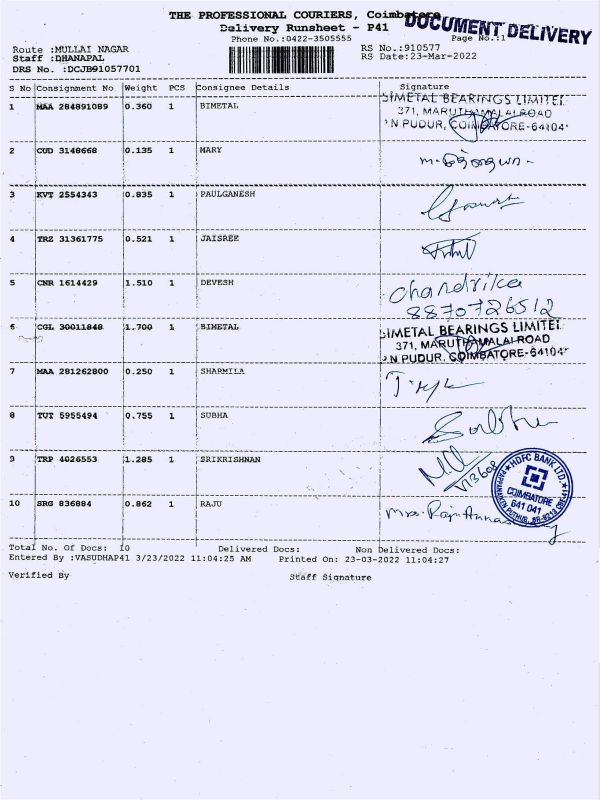 THE PROFESSIONAL COURIERS, Coimbatore
DOCUMENT DELIVERY
Delivery Runsheet - P41
Phone No.:0422-3505555 Page No.:1
Route :MULLAI NAGAR RS No.:910577
Staff :DHANAPAL RS Date:23-Mar-2022
DRS No. :DCJB91057701
S No Consignment No Weight PCS Consignee Details Signature
1 MAA 284891089 0.360 1 BIMETAL
SIMETAL BEARINGS LIMITEI
371, MARUTHAMALAI ROAD
N PUDUR, COIMBATORE-64104
2 CUD 3148668 0.135 1 MARY
3 KVT 2554343 0.835 1 PAULGANESH
4 TRZ 31361775 0.521 1 JAISREE
5 CNR 1614429 1.510 1 DEVESH
Chandrika
8870726512
6 CGL 30011848 1.700 1 BIMETAL
SIMETAL BEARINGS LIMITEI
371, MARUTHAMALAI ROAD
N PUDUR, COIMBATORE-64104
7 MAA 281262800 0.250 1 SHARMILA
8 TUT 5955494 0.755 1 SUBHA
9 TRP 4026553 1.285 1 SRIKRISHNAN
HDFC BANK LTD.
COIMBATORE
641 041
10 SRG 836884 0.862 1 RAJU
Total No. Of Docs: 10 Delivered Docs: Non Delivered Docs:
Entered By :VASUDHAP41 3/23/2022 11:04:25 AM Printed On: 23-03-2022 11:04:27
Verified By Staff Signature